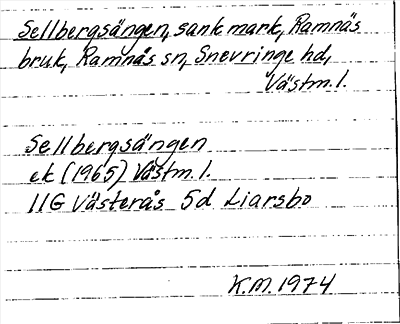 Sellbergsängen, sank mark, Ramnäs
bruk, Ramnäs sn, Snevringe hd,
Västm. l.
Sellbergsängen
ek (1965) Västm. l.
11G Västerås 5d Liarsbo
K.M. 1974